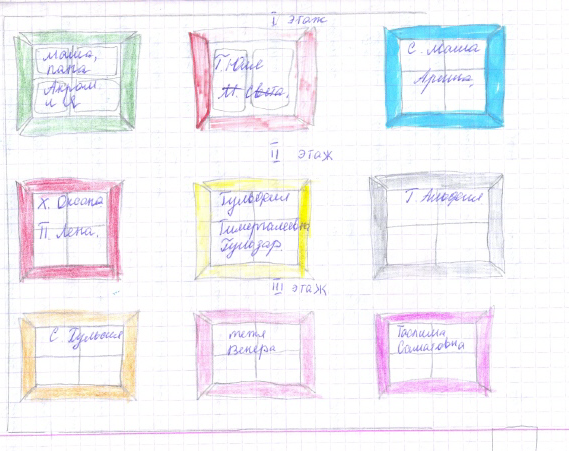 I этаж
мама,
папа
Акрам
и я
Г. Юля
М. Света.
С. Маша
Арина,
II этаж
Х. Оксана
П. Лена.
Гульфия
Тимергалеевна
Гулюзар.
Г. Альфия
III этаж
С. Гульсия
тетя
Венера
Таслима
Саматовна